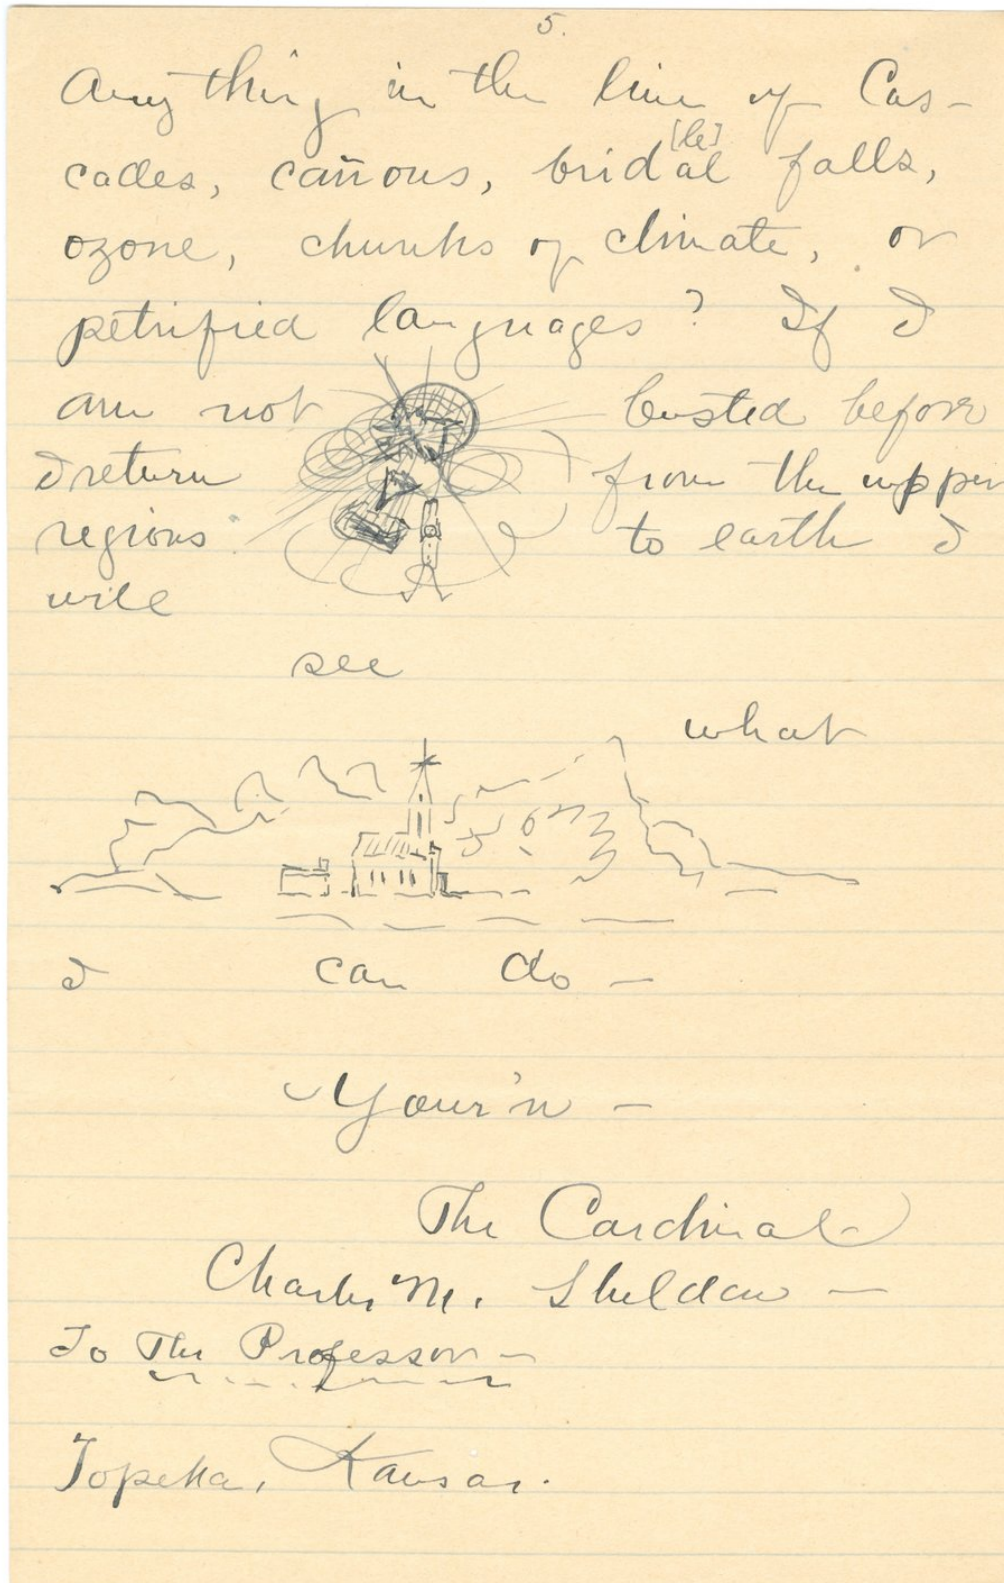 5.
Anything in the line of Cas-
[le]
cades, cañons, bridal falls,
ozone, chunks of climate, or
petrified languages? If I
am not busted before
I return from the upper
regions to earth I
will
see
what
I can do —
Your'n —
The Cardinal
Charles M. Sheldon —
To The Professor —
Topeka, Kansas.